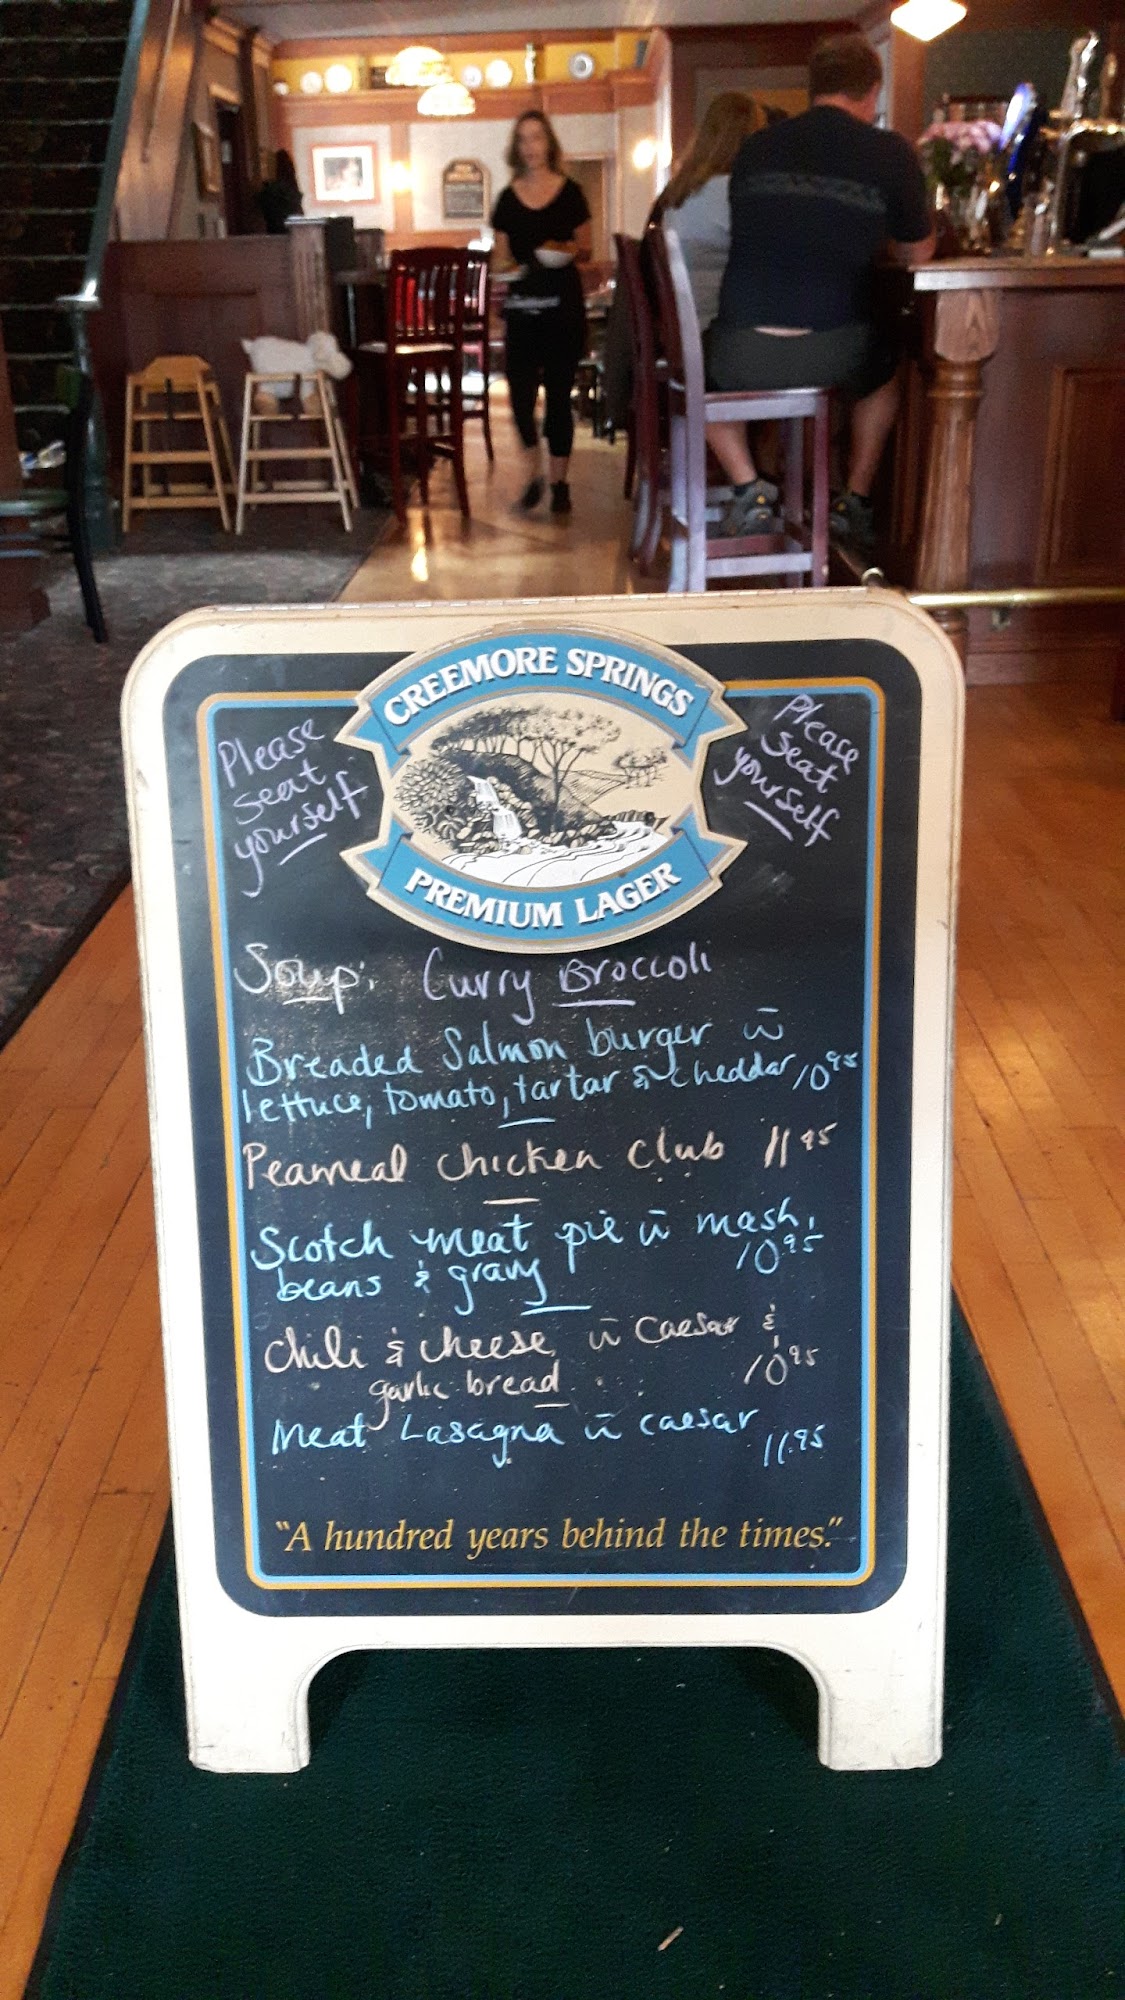 CREEMORE SPRINGS
PREMIUM LAGER
Please
seat
yourself
Please
seat
yourself
Soup: Curry Broccoli
Breaded Salmon burger w̄
lettuce, tomato, tartar & cheddar 10.95
Peameal chicken club 11.95
Scotch meat pie w̄ mash,
beans & gravy 10.95
Chili & cheese w̄ Caesar &
garlic bread 10.95
Meat Lasagna w̄ caesar
11.95
"A hundred years behind the times."